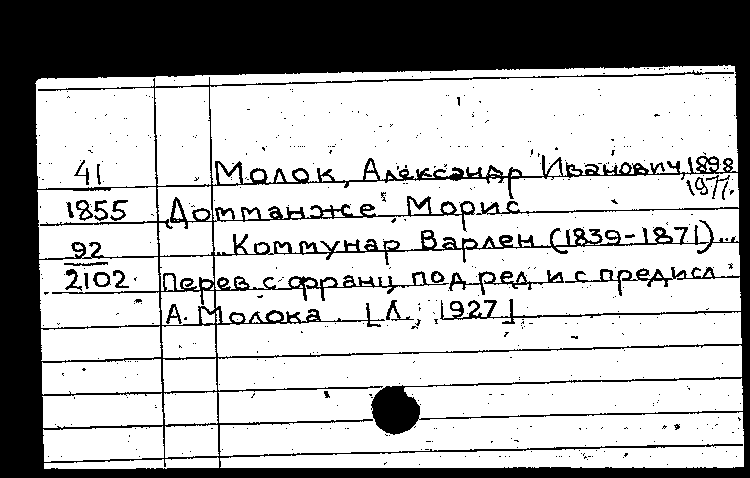 41 Молок, Александр Иванович, 1898
1977.
1855 Домманже, Морис
92 ...Коммунар Варлен (1839-1871)...
2102 Перев. с франц. под ред. и с предисл.
А. Молока. [Л., 1927].